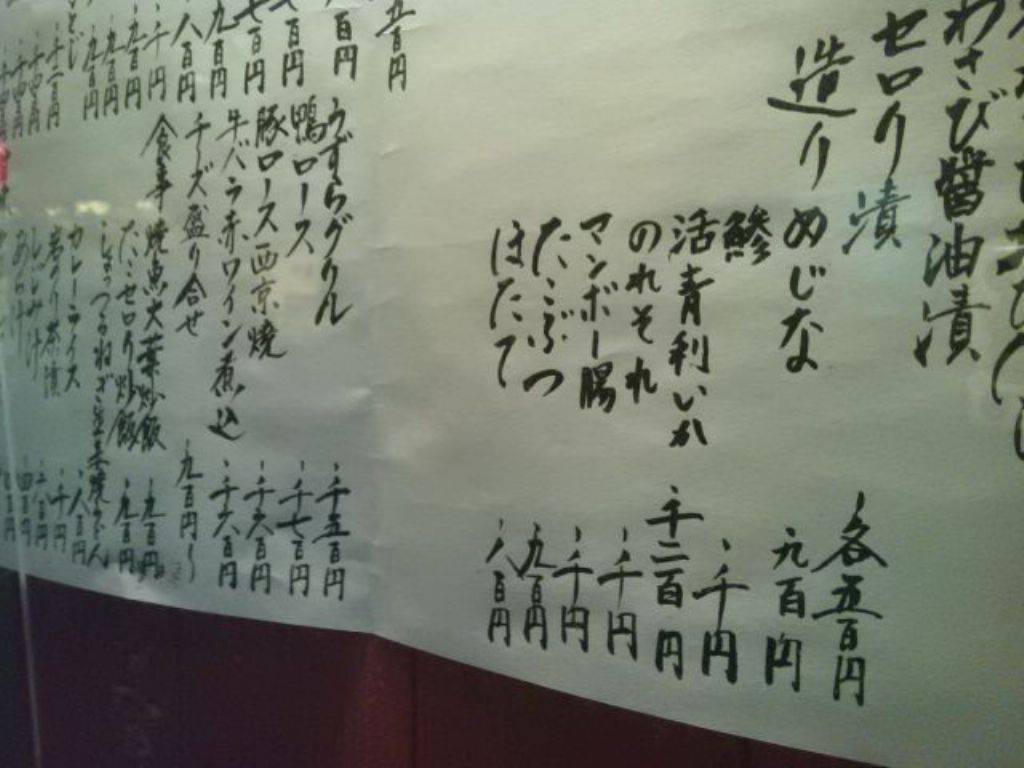 わさび醤油漬
セロリ漬 各五百円
造り めじな 九百円
鯵 、千円
活青利いか 千二百円
のれそれ 、千円
マンボー腸 、千円
たこぶつ 、九百円
ほたて 、八百円
五百円
八百円
百円
七百円
九百円
八百円
千円
九百円
九百円
九百円
千二百円
うずらグリル 、千五百円
鴨ロース 、千七百円
豚ロース西京焼 、千六百円
牛バラ赤ワイン煮込 、千六百円
チーズ盛り合せ 九百円〜
食事 焼魚大葉炒飯 、九百円
たこセロリ炒飯 、九百円
カレーライス 、千円
岩のり茶漬 、八百円
しじみ汁
あら汁 四百円